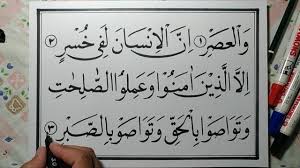 وَالْعَصْرِ ۝١ اِنَّ الْاِنْسَانَ لَفِيْ خُسْرٍ ۝٢
اِلَّا الَّذِيْنَ اٰمَنُوْا وَعَمِلُوا الصّٰلِحٰتِ
وَتَوَاصَوْا بِالْحَقِّ وَتَوَاصَوْا بِالصَّبْرِ ۝٣